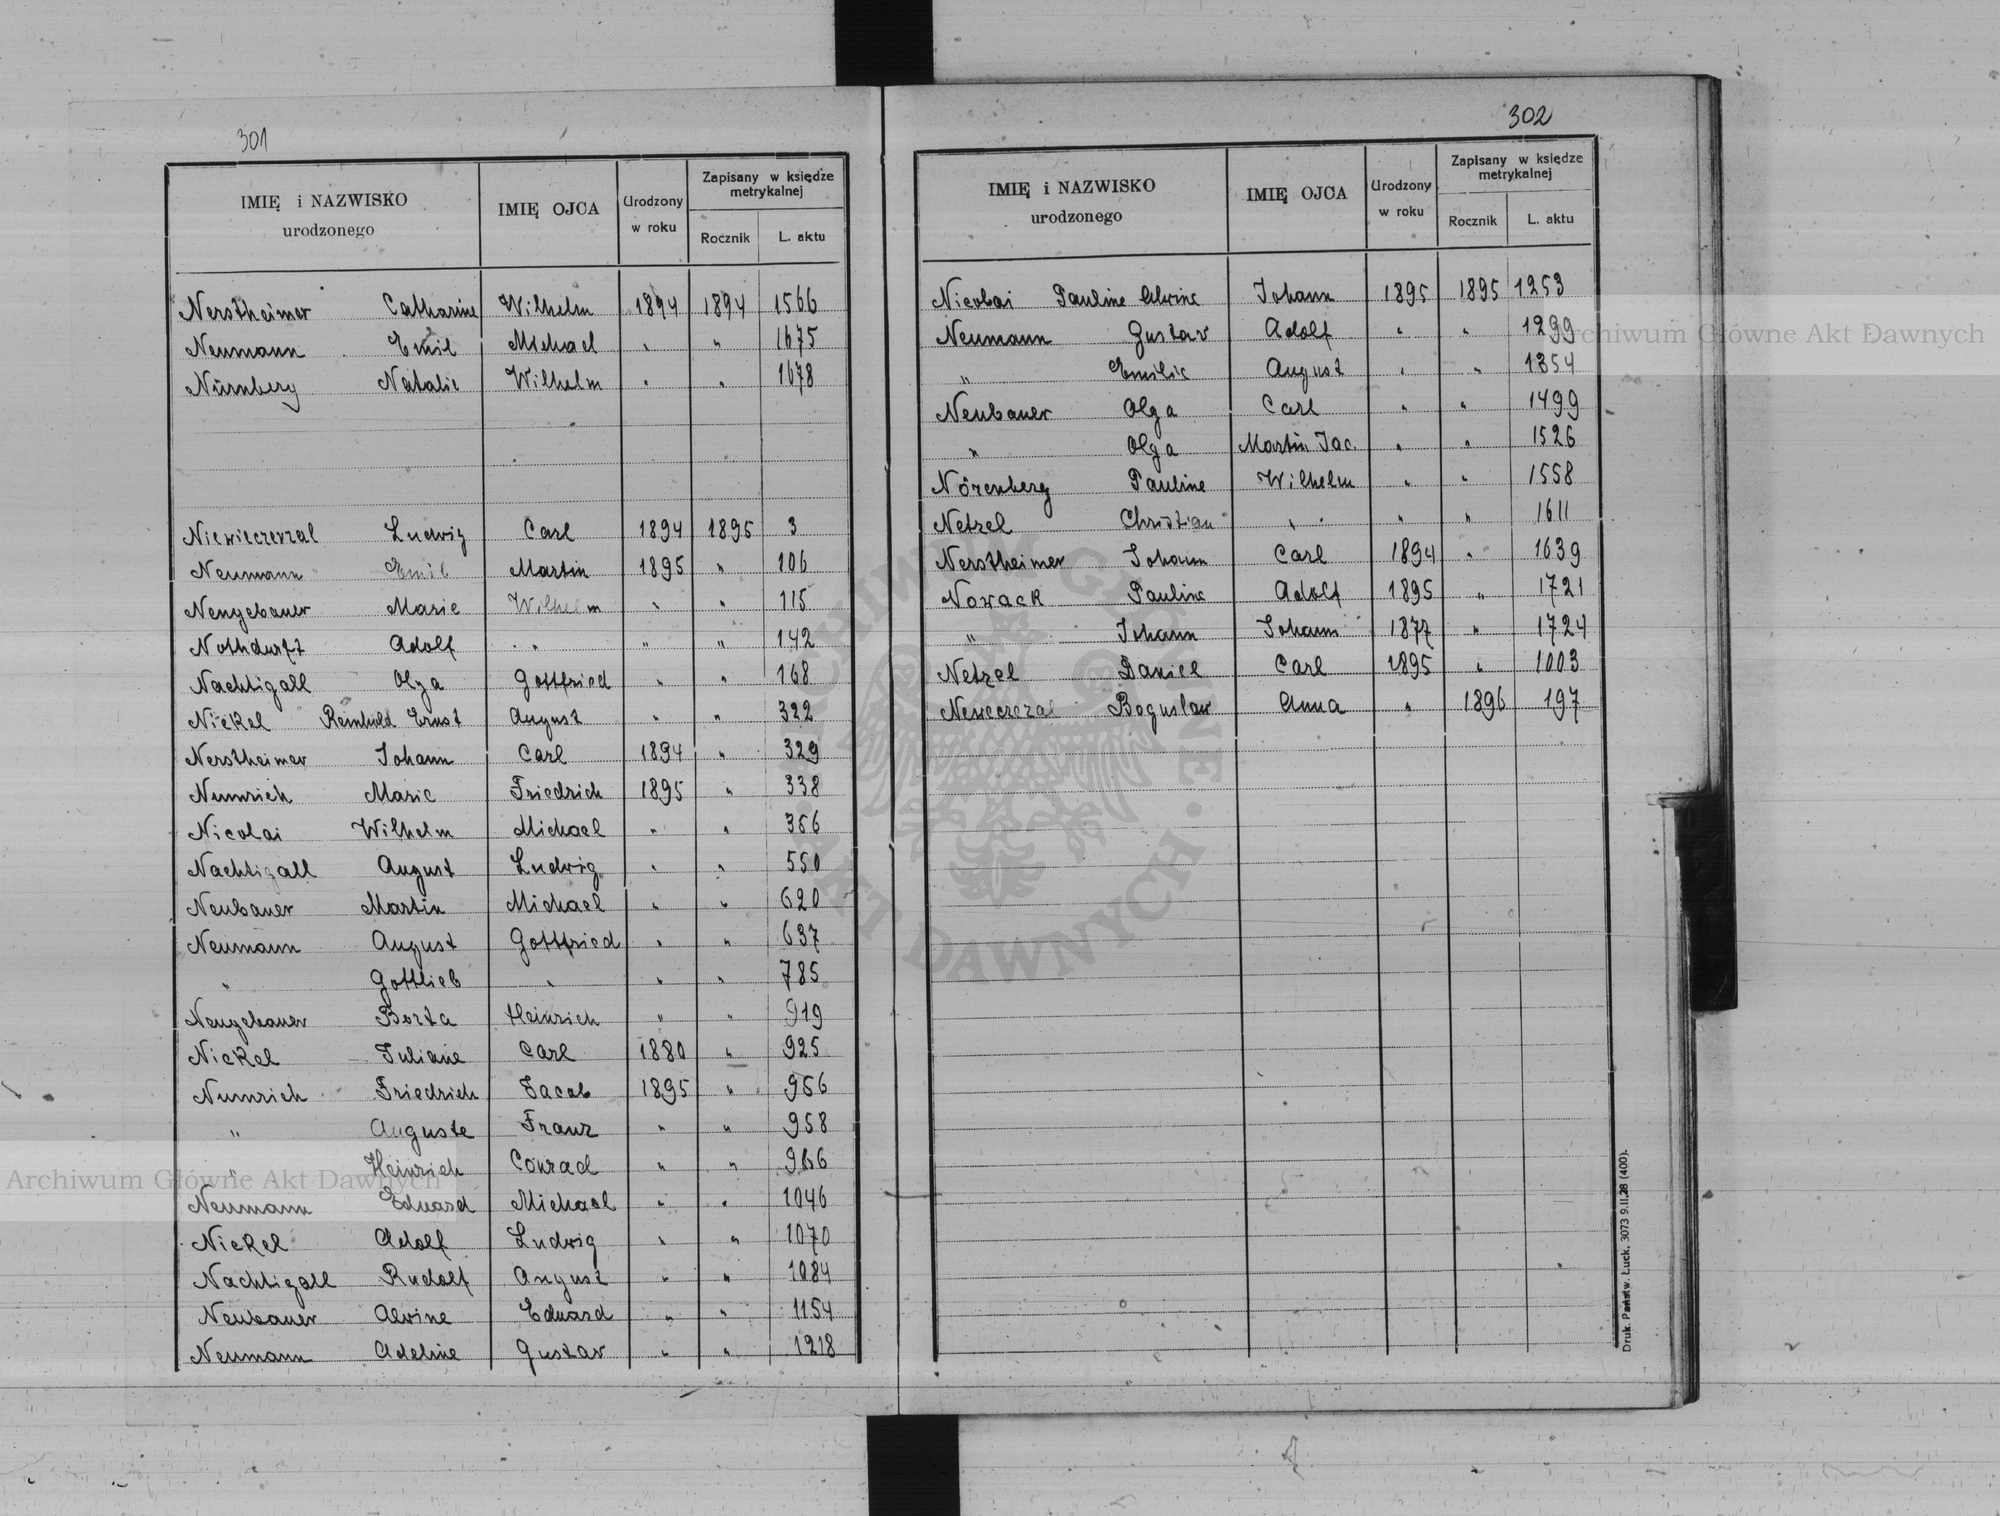 301
IMIĘ i NAZWISKO urodzonego | IMIĘ OJCA | Urodzony w roku | Zapisany w księdze metrykalnej
Rocznik | L. aktu
Nerstheimer Catharine Wilhelm 1894 1894 1566
Neumann Emil Michael " " 1675
Nürnberg Natalie Wilhelm " " 1678
Niewieczerzal Ludwig Carl 1894 1895 3
Neumann Emil Martin 1895 " 106
Neugebauer Marie Wilhelm " " 115
Nothdurft Adolf " " " 142
Nachtigall Olga Gottfried " " 168
Nickel Reinhold Ernst August " " 322
Nerstheimer Johann Carl 1894 " 329
Numrich Marie Friedrich 1895 " 338
Nicolai Wilhelm Michael " " 366
Nachtigall August Ludwig " " 550
Neubauer Martin Michael " " 620
Neumann August Gottfried " " 637
" Gottlieb " " " 785
Neugebauer Berta Heinrich " " 919
Nickel Juliane Carl 1880 " 925
Numrich Friedrich Jacob 1895 " 956
" Auguste Franz " " 958
" Heinrich Conrad " " 966
Neumann Eduard Michael " " 1046
Nickel Adolf Ludwig " " 1070
Nachtigall Rudolf August " " 1084
Neubauer Alvine Eduard " " 1154
Neumann Adeline Gustav " " 1218
302
IMIĘ i NAZWISKO urodzonego | IMIĘ OJCA | Urodzony w roku | Zapisany w księdze metrykalnej
Rocznik | L. aktu
Nicolai Pauline Alwine Johann 1895 1895 1253
Neumann Gustav Adolf " " 1299
" Emilie August " " 1354
Neubauer Olga Carl " " 1499
" Olga Martin Jac. " " 1526
Nörenberg Pauline Wilhelm " " 1558
Netzel Christian " " " 1611
Nerstheimer Johann Carl 1894 " 1639
Nowack Pauline Adolf 1895 " 1721
" Johann Johann 1877 " 1724
Netzel Daniel Carl 1895 " 1003
Neweczezal Boguslaw Anna " 1896 197
Druk. Państw. Łuck. 3073 9.II.28 (400).
Archiwum Główne Akt Dawnych
Archiwum Główne Akt Dawnych
ARCHIWUM GŁÓWNE · AKT DAWNYCH ·